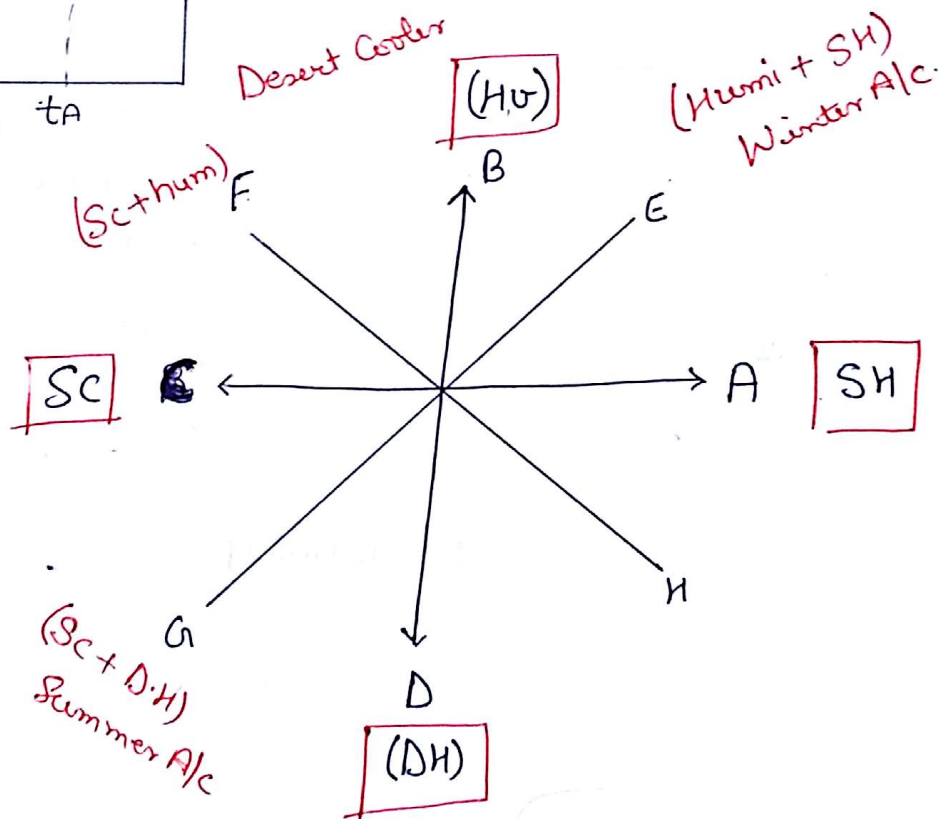 tA
Desert Cooler
(H,U)
(Humi + SH)
Winter A/c.
B
(Sc+hum)
F
E
SC
C
A
SH
G
H
(Sc + D.H)
Summer A/c
D
(DH)